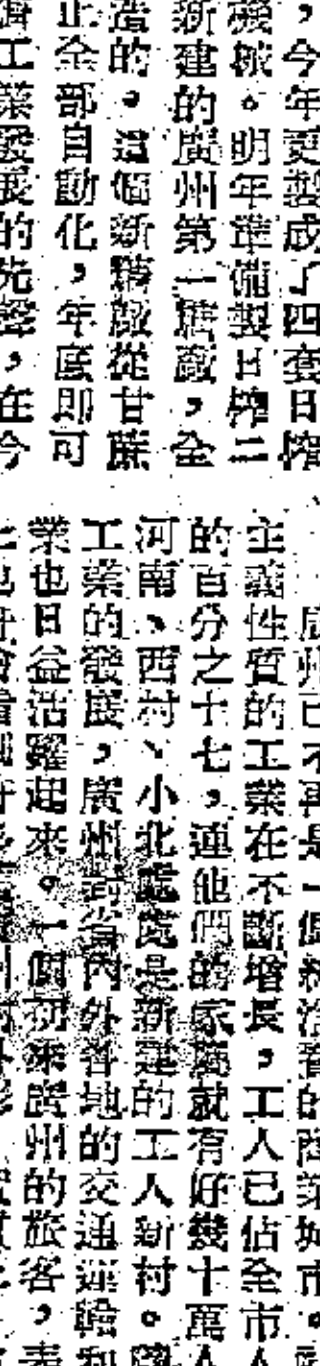 ，今年更製成了四套日榨
機械。明年準備製日榨二
新建的廣州第一糖廠，全
造的。這個新糖廠從甘蔗
止全部自動化，年底即可
工業發展的先聲，在今
廣州已不再是一個純消費的商業城市。
主義性質的工業在不斷增長，工人已佔全市
的百分之十七，連他們的家屬就有好幾十萬
河南、西村、小北處處是新建的工人新村。
工業的發展，廣州對省內外各地的交通運輸
業也日益活躍起來。一個初來廣州的旅客，